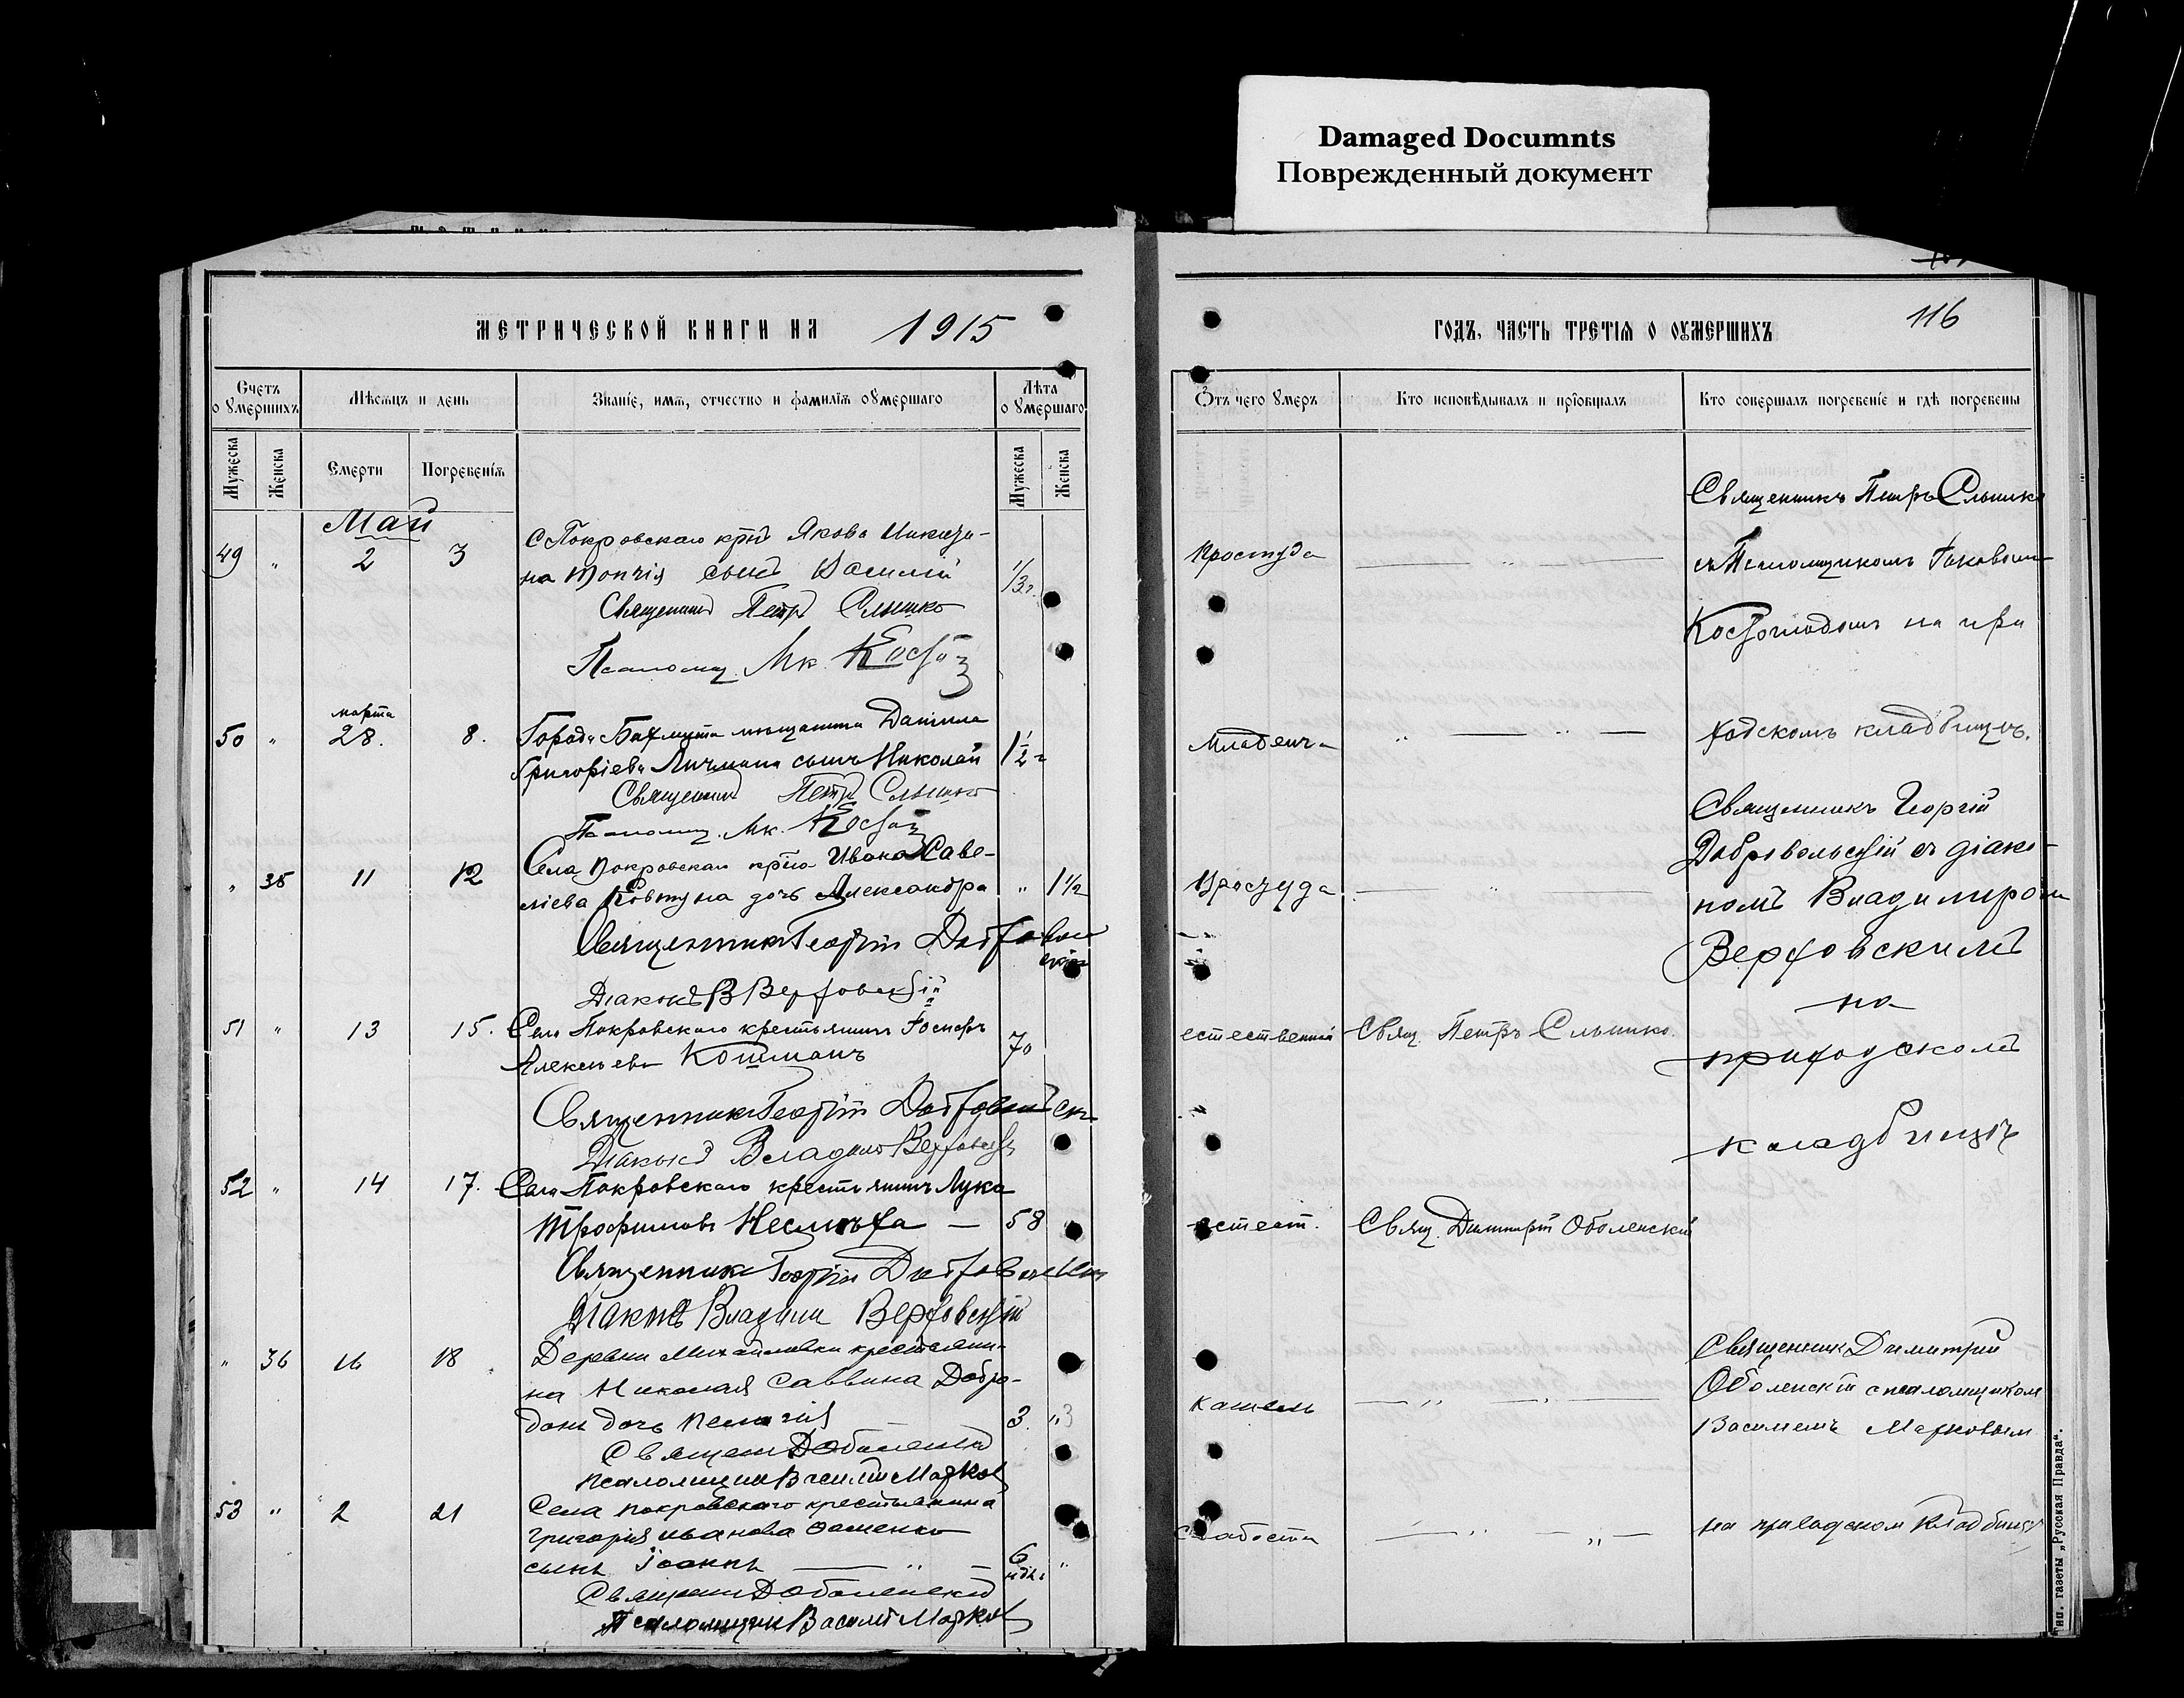 Damaged Documnts
Поврежденный документ
МЕТРИЧЕСКОЙ КНИГИ НА 1915
Счетъ о умершихъ
Мѣсяцъ и день
Званіе, имя, отчество и фамилія умершаго
Лѣта о умершаго
Мужеска
Женска
Смерти
Погребенія
Мужеска
Женска
Май
49 " 2 3
С Покровскаго крест Якова
на Топчія сынъ Василій 1/3 г.
Священникъ Петръ Слынько
Псаломщ.
марта
50 " 28. 8. Города Бахмута мѣщанина Даніила
Григорьева сынъ Николай 1 1/2 г
Священникъ Петръ Слынько
Псаломщ.
" 35 11 12 Села Покровскаго крест Ивана Саве-
ліева Ковтуна дочь Александра " 1 1/2
Священникъ Георгій Добровольскій
Діаконъ В Верховскій
51 " 13 15. Села Покровскаго крестьянинъ Іосифъ
Алексѣевъ Кошманъ 70
Священникъ Георгій Добровольск
Діаконъ Владим Верховскій
52 " 14 17. Села Покровскаго крестьянинъ Лука
Трофимовъ — 58
Священникъ Георгій Добровольскій
Діаконъ Владим Верховскій
" 36 16 18 Деревни Михайловки крестьяни-
на Николая Саввина Добро-
дочь Пелагія 3. " 3
Священ Д Оболенскій
Псаломщик Василій Марков
53 " 2 21 Села Покровскаго крестьянина
Григорія Иванова
сынъ Іоаннъ — " — 6 ндл. "
Священ Д Оболенскій
Псаломщик Василій Марков
116
ГОДЪ, ЧАСТЬ ТРЕТІЯ О ОУМЕРШИХЪ
Отъ чего умеръ
Кто исповѣдывалъ и пріобщалъ
Кто совершалъ погребеніе и гдѣ погребены
Священникъ Петръ Слынько
Простуда — " — съ Псаломщикомъ Іаковомъ
на при
Младенч. " — " — ходскомъ кладбищѣ.
Священникъ Георгій
Добровольскій съ діако-
Простуда — " — номъ Владимиромъ
Верховскимъ
на
естественной Свящ. Петръ Слынько.
приходскомъ
кладбищѣ
естест. Свящ. Димитрій Оболенскій
Священник Димитрий
Оболенскій с псаломщиком
Кашель — " — " — Василіемъ Марковым
слабости — " — " — на приходском кладбищѣ
Тип. газеты „Русская Правда“.